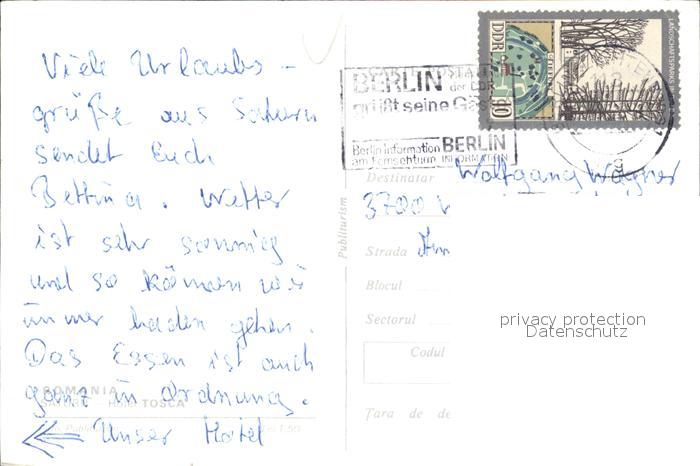 Viele Urlaubs -
grüße aus Saturn
sendet Euch
Bettina. Wetter
ist sehr sonnig
und so können wir
immer baden gehen.
Das Essen ist auch
ganz in Ordnung.
← Unser Hotel
ROMANIA
SATURN Hotel TOSCA
Publiturism
BERLIN
HAUPTSTADT
der DDR
grüßt seine Gäste
Berlin-Information BERLIN
am Fernsehturm INFORMATION
DDR
10
Destinatar Wolfgang Wagner
3700 W
Strada
Blocul
Sectorul
Codul
Țara de de
privacy protection
Datenschutz